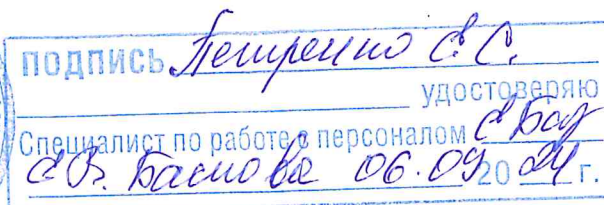 ПОДПИСЬ Петренко Е.С.
удостоверяю
Специалист по работе с персоналом
Е.В. 06.09 2024 г.